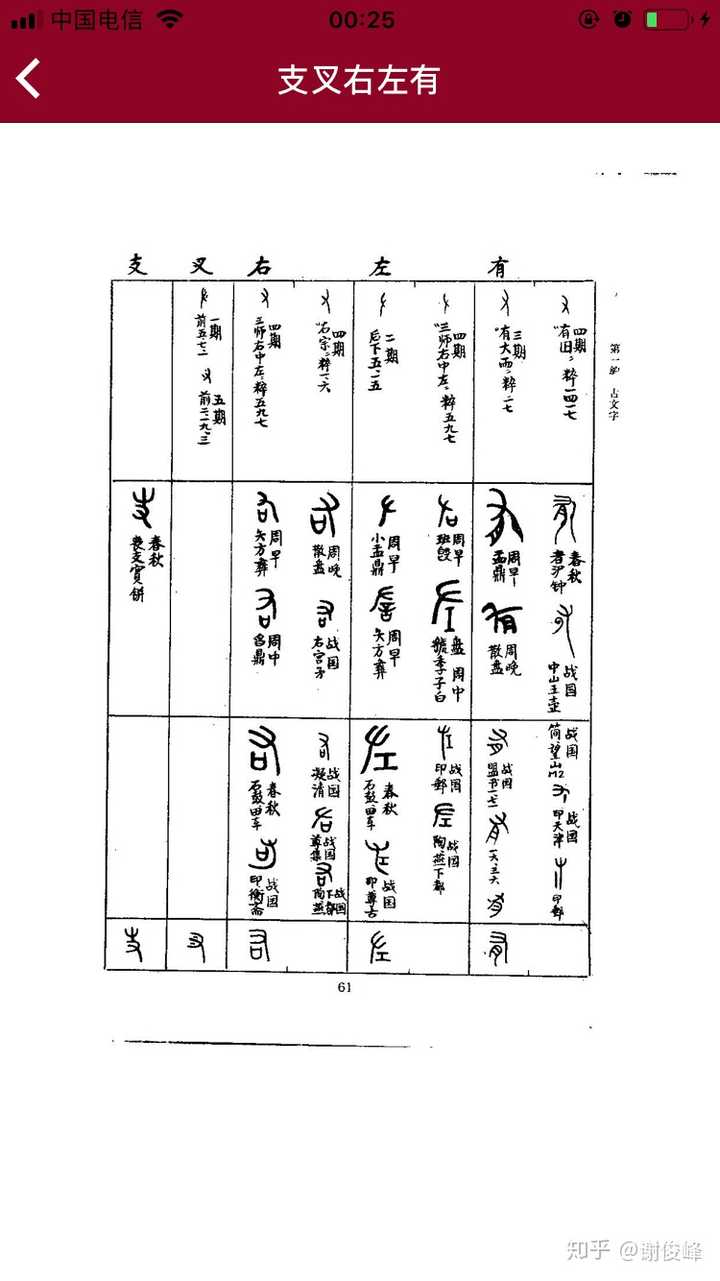 中国电信
00:25
支叉右左有
支 叉 右 左 有
一期
前五.七.二
五期
前二.一九.三
四期
三师右中左.粹五九七
四期
"右宗".粹一.六
二期
后下五.五
四期
"三师右中左".粹五九七
三期
"有大雨".粹二七
四期
"有田".粹一四一七
古文字
春秋
周早
矢方彝
周中
曶鼎
周晚
散盘
战国
右宫矛
周早
小盂鼎
周早
矢方彝
周早
班𣪘
周中
虢季子白盘
周早
盂鼎
周晚
散盘
春秋
者沪钟
战国
中山王壶
春秋
石鼓田车
战国
印衡斋
战国
凝清
战国
尊集
战国
陶燕下都
春秋
石鼓田车
战国
印尊古
战国
印邮
战国
陶燕下都
战国
盟书
战国
简望山M2
战国
印天津
印邮
支 叉 右 左 有
61
知乎 @谢俊峰